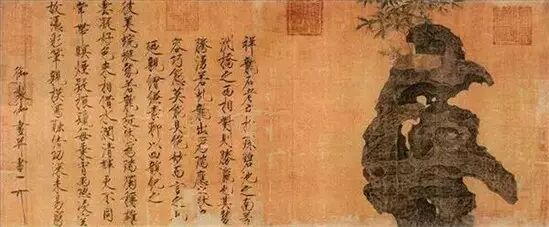 祥龍石者立於環碧池之南芳
洲橋之西相對則勝瀛也其勢
騰湧若虬龍出為瑞應之狀奇
容巧態莫能具絕妙而言之也
廼親繪縑素聊以四韻紀之
彼美蜿蜒勢若龍挺然為瑞獨稱雄
雲凝好色來相借水潤清輝更不同
常帶暝煙疑振鬣每乘宵雨恐凌空
故憑彩筆親模寫融結功深未易窮
御製御畫並書